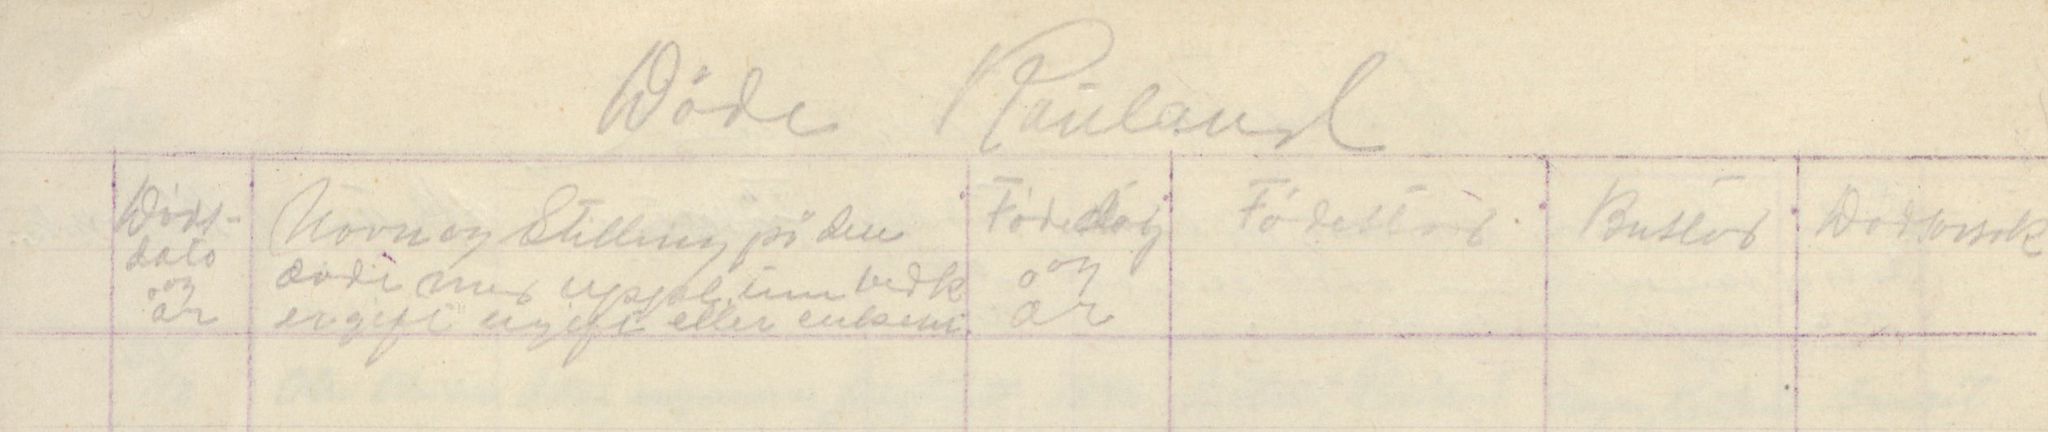 Döde Rauland
Döds-
dato
og
år
Navn og Stilling på den
döde med uppgl. um vedk
er gift ugift eller enkem.
Födedag
og
år
Födestad
Bustad
Dödsorsak